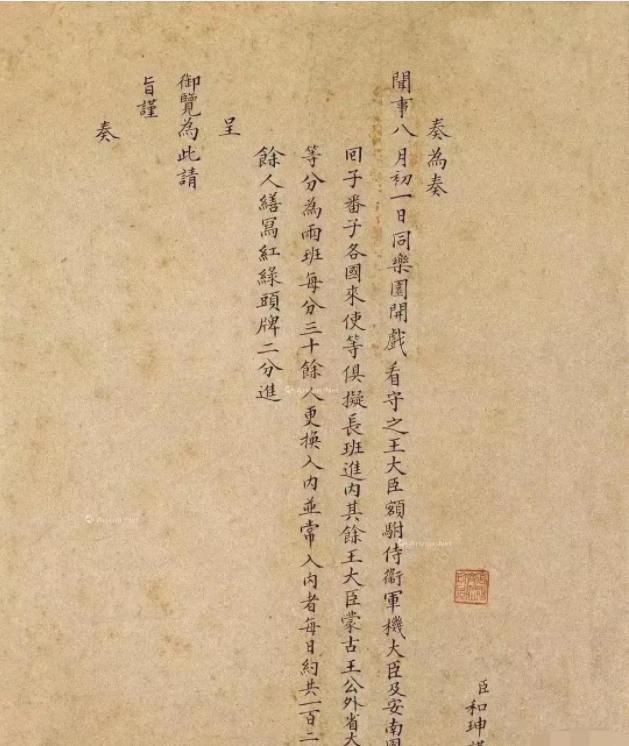 臣和珅謹
奏為奏
聞事八月初一日同樂園開戲看守之王大臣額駙侍衛軍機大臣及安南國
回子番子各國來使等俱擬長班進內其餘王大臣蒙古王公外省大
等分為兩班每分三十餘人更換入內並常入內者每日約共一百二
餘人繕寫紅綠頭牌二分進
呈
御覽為此請
旨謹
奏